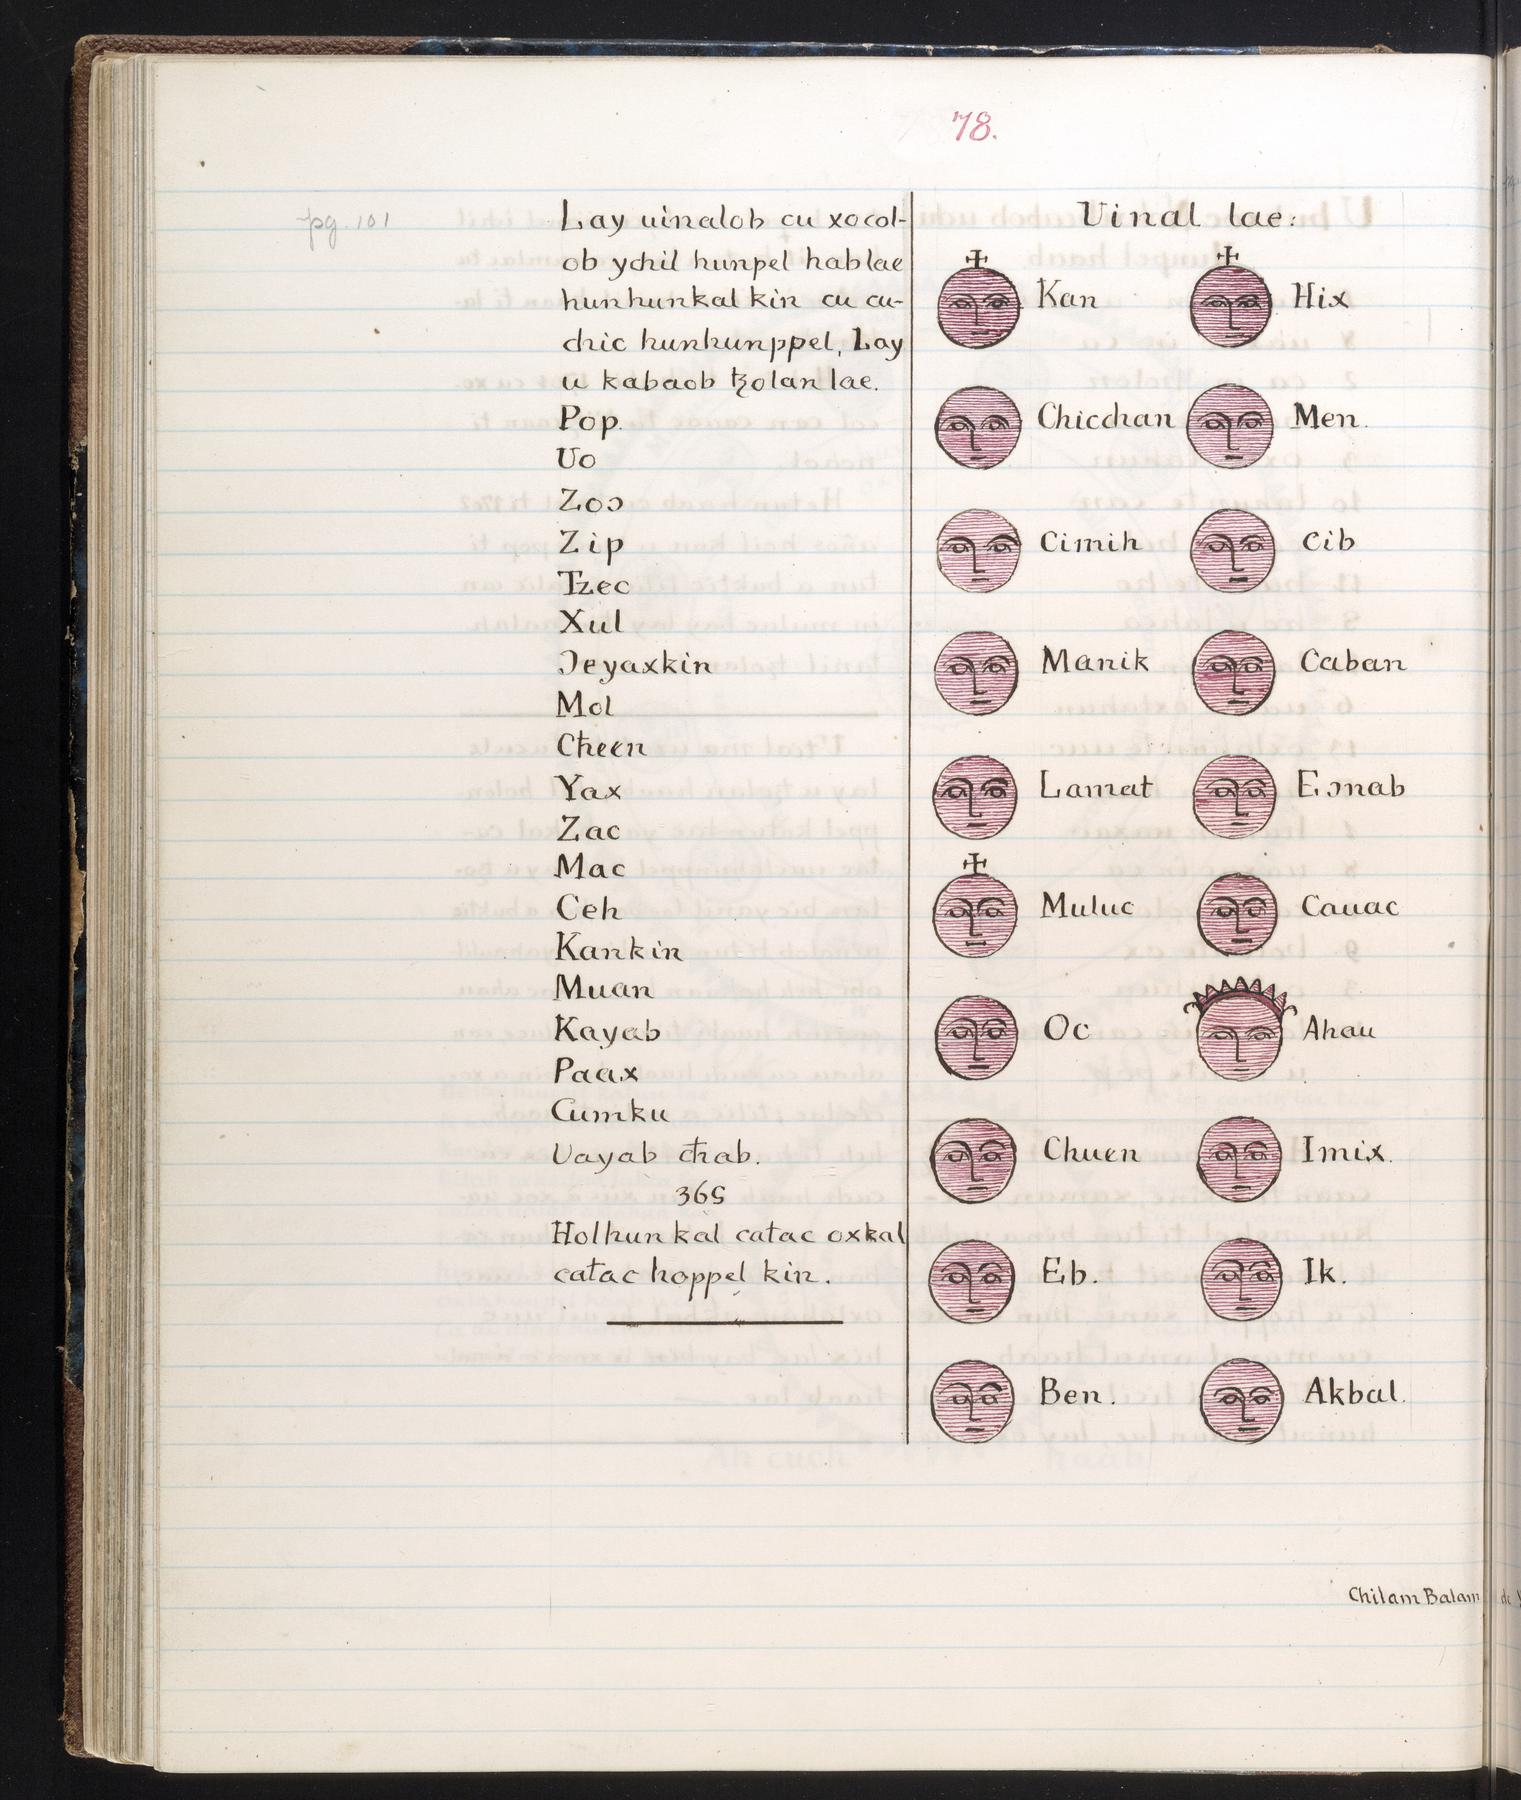 78.
pg. 101
Lay uinalob cu xocol-
ob ychil hunpel hablae
hunhunkal kin cu cu-
chic hunhunppel, Lay
u kabaob ꜩolan lae.
Pop.
Uo
Zoɔ
Zip
Tzec
Xul
Ɔeyaxkin
Mol
Cħeen
Yax
Zac
Mac
Ceh
Kankin
Muan
Kayab
Paax
Cumku
Uayab cħab.
365
Holhun kal catac oxkal
catac hoppel kin.
Uinal lae:
Kan Hix
Chicchan Men.
Cimih Cib
Manik Caban
Lamat Eɔnab
Muluc Cauac
Oc Ahau
Chuen Imix.
Eb. Ik.
Ben. Akbal.
Chilam Balam de